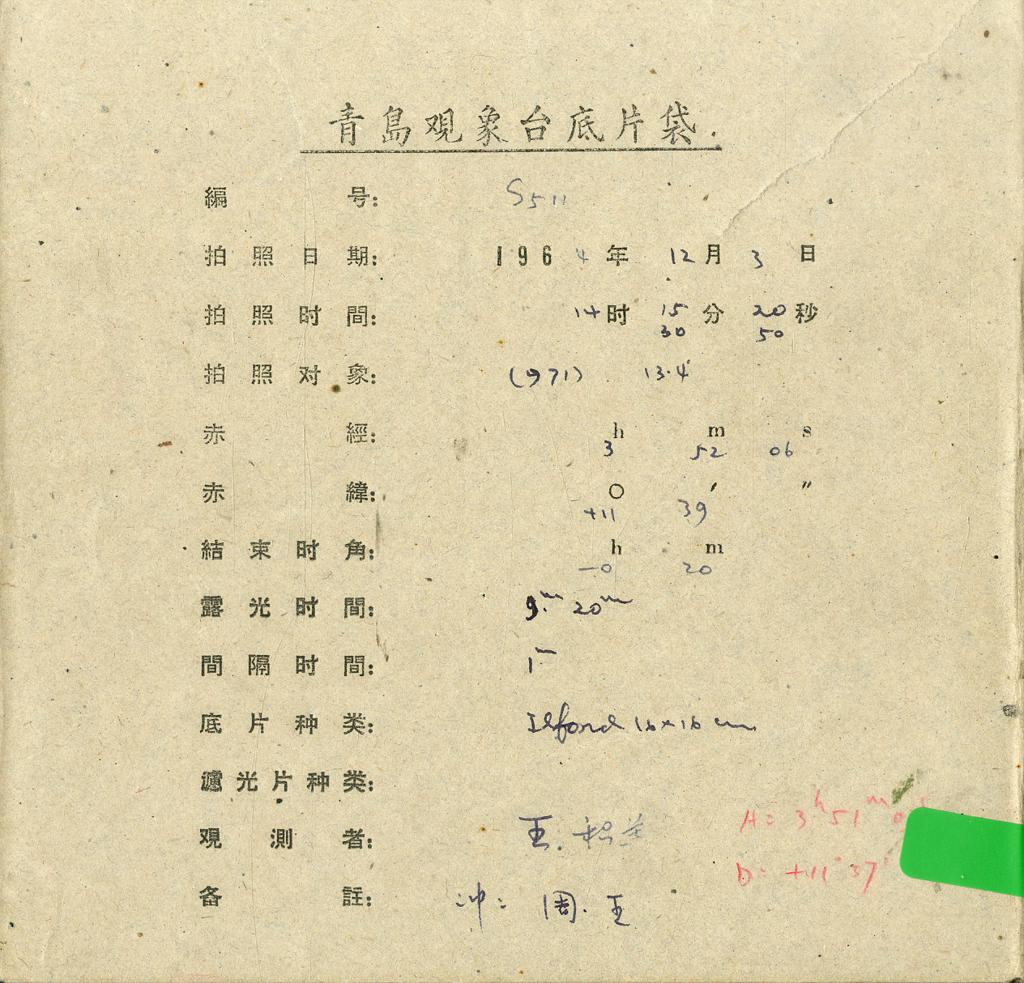 青島观象台底片袋.
編号: S511
拍照日期: 1964年 12月 3日
拍照时間: 14时 15分 20秒
30 50
拍照对象: (971) 13.4
赤經: h m s
3 52 06
赤緯: ○ ′ ″
+11 39
結束时角: h m
-0 20
露光时間: 9m 20m
間隔时間: 1m
底片种类: Ilford 16×16 cm
濾光片种类:
观測者: 王.
A: 3h 51m
D: +11° 37′
备註: 冲: 周. 王